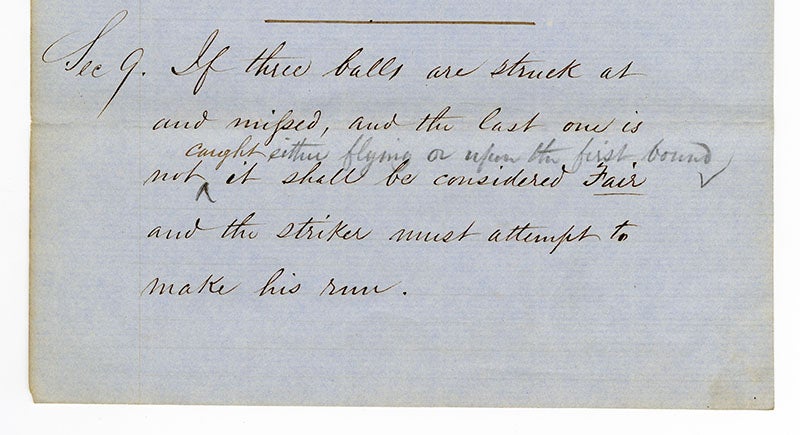 Sec 9. If three balls are struck at
and missed, and the last one is
caught either flying or upon the first bound
not ^ it shall be considered Fair
and the striker must attempt to
make his run.